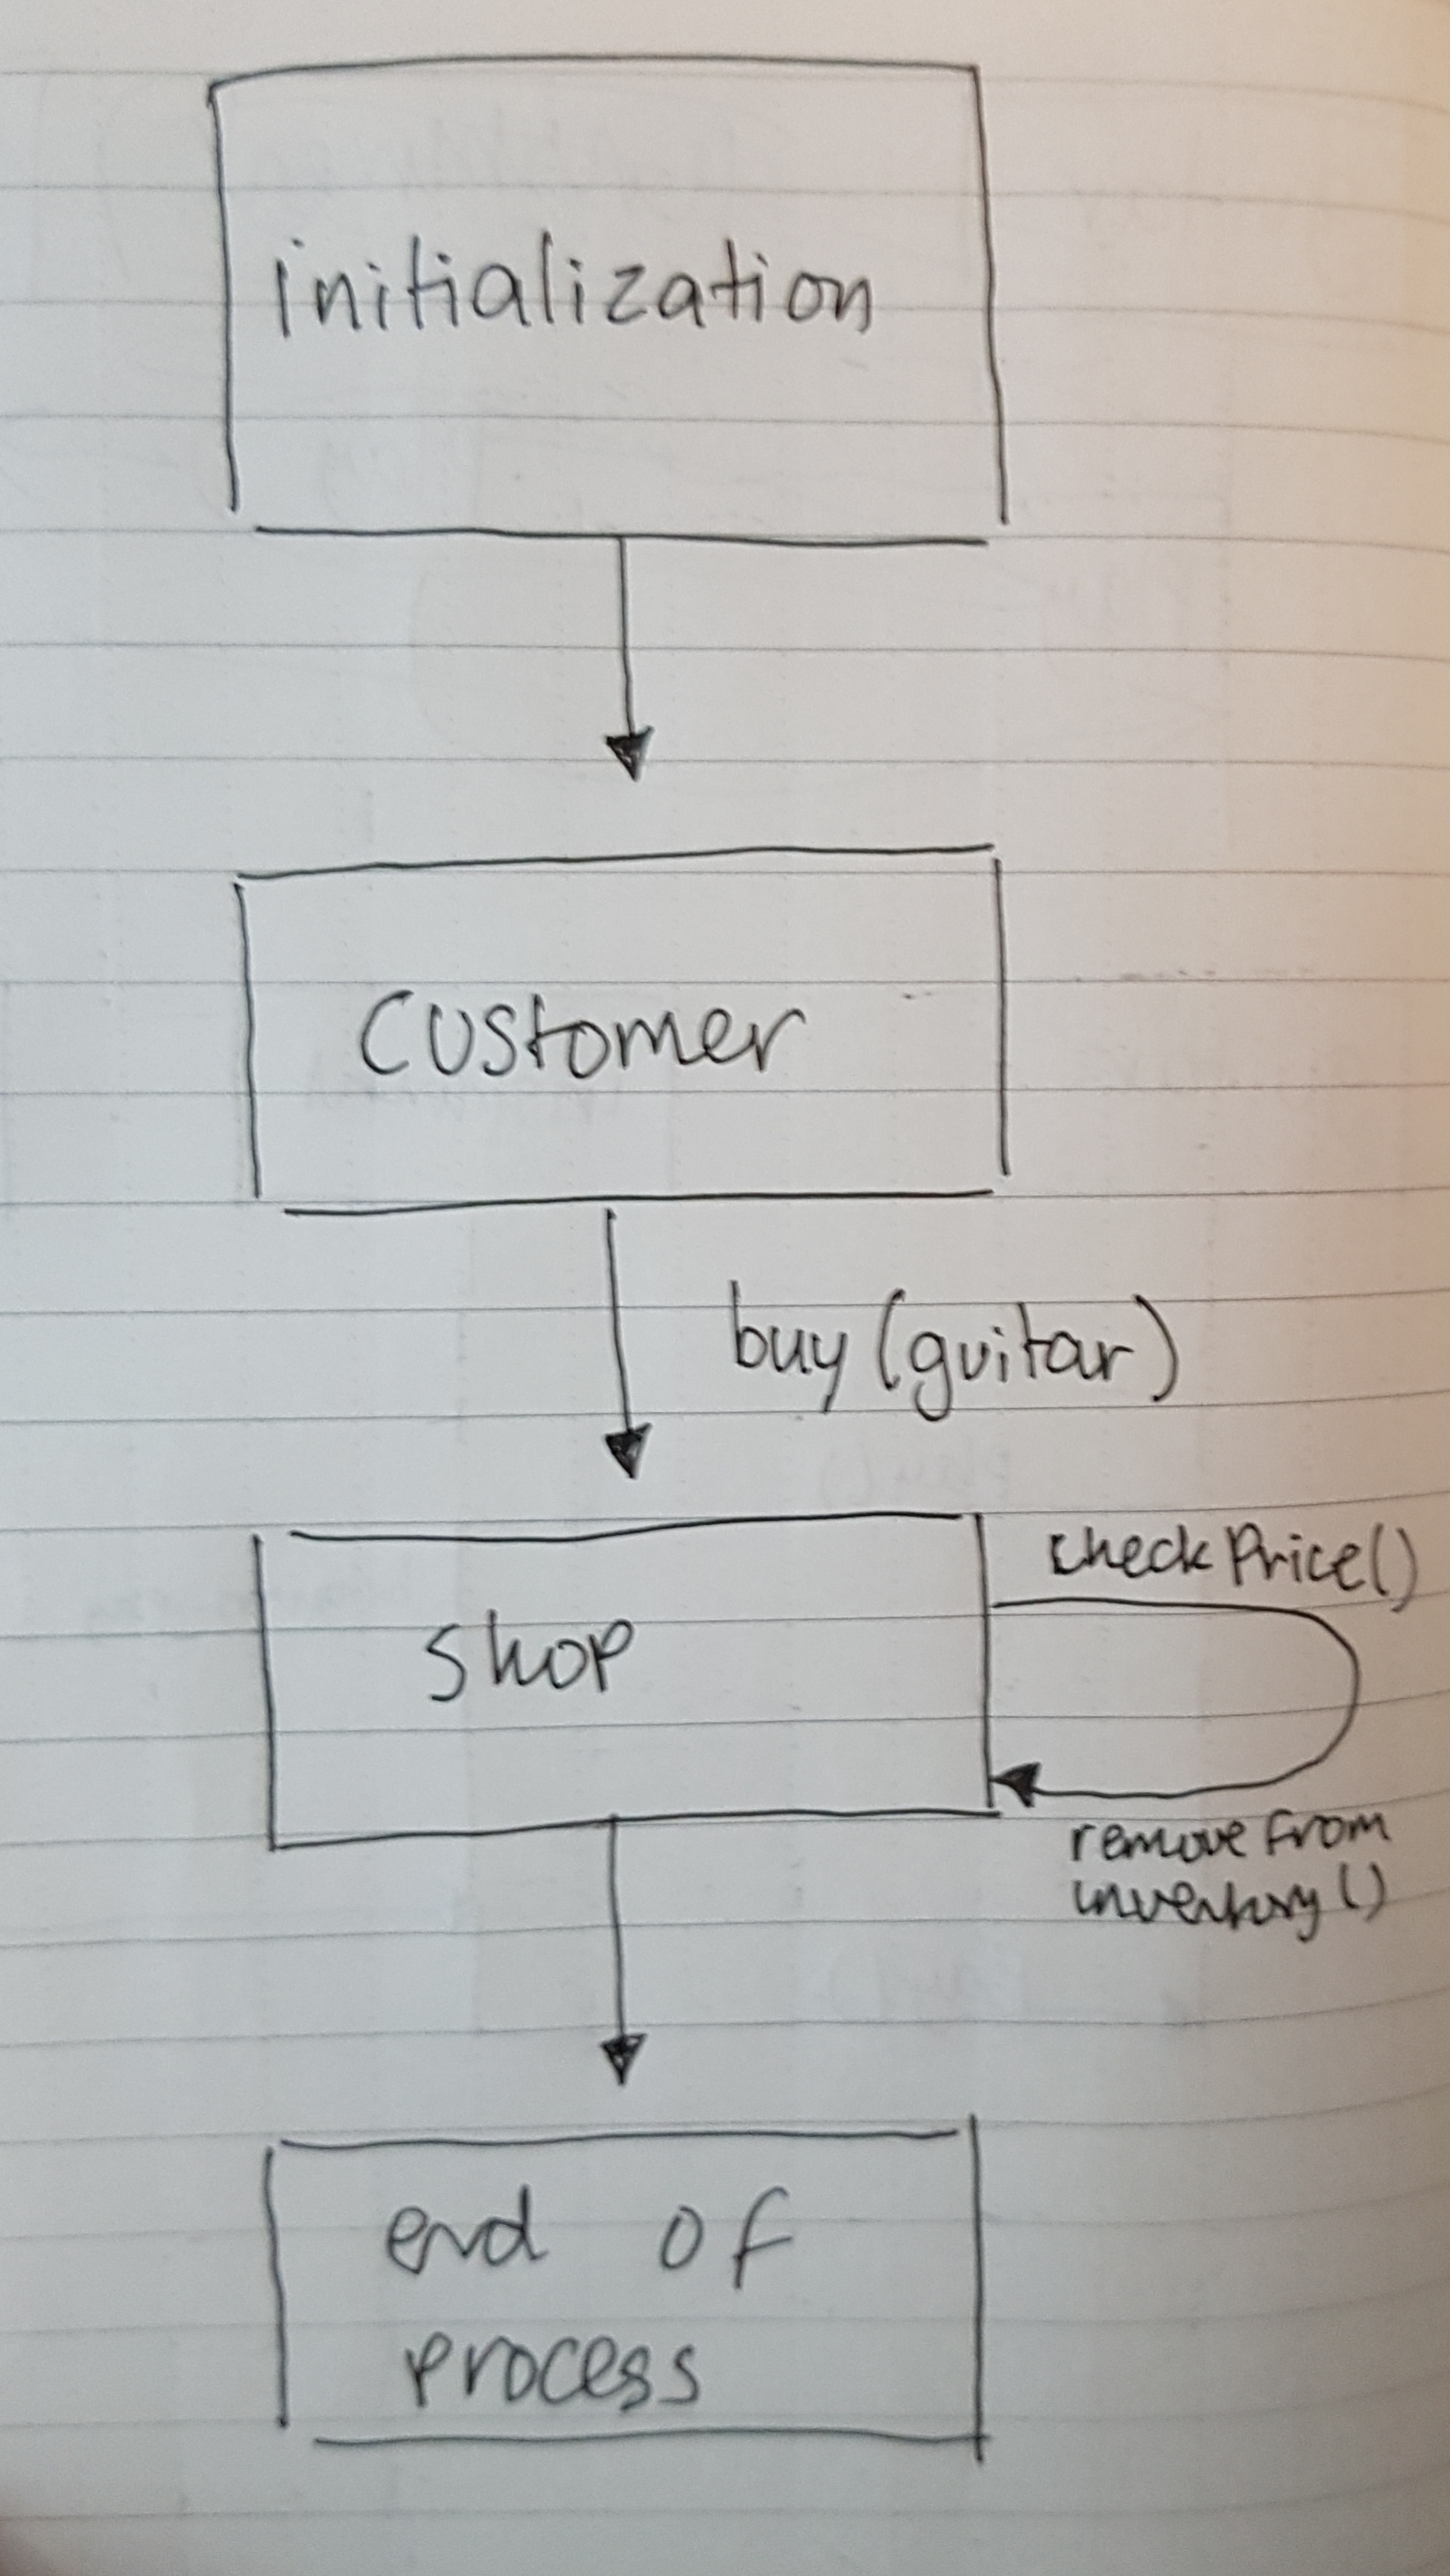 initialization
Customer
buy (guitar)
checkPrice()
shop
remove from
inventory()
end of
process